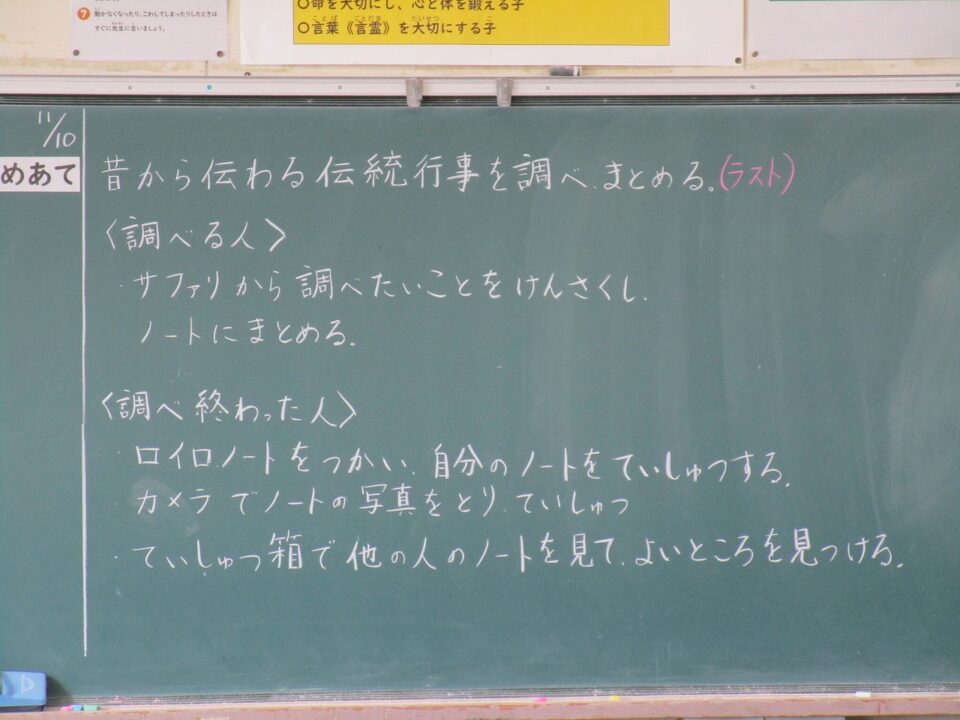 7 動かなくなったり、こわしてしまったりしたときは
すぐに先生に言いましょう。
○命を大切にし、心と体を鍛える子
○言葉《言霊》を大切にする子
11/10
めあて
昔から伝わる伝統行事を調べ、まとめる。(ラスト)
〈調べる人〉
・サファリから調べたいことをけんさくし、
ノートにまとめる。
〈調べ終わった人〉
・ロイロノートをつかい、自分のノートをていしゅつする。
・カメラでノートの写真をとり、ていしゅつ
・ていしゅつ箱で他の人のノートを見て、よいところを見つける。